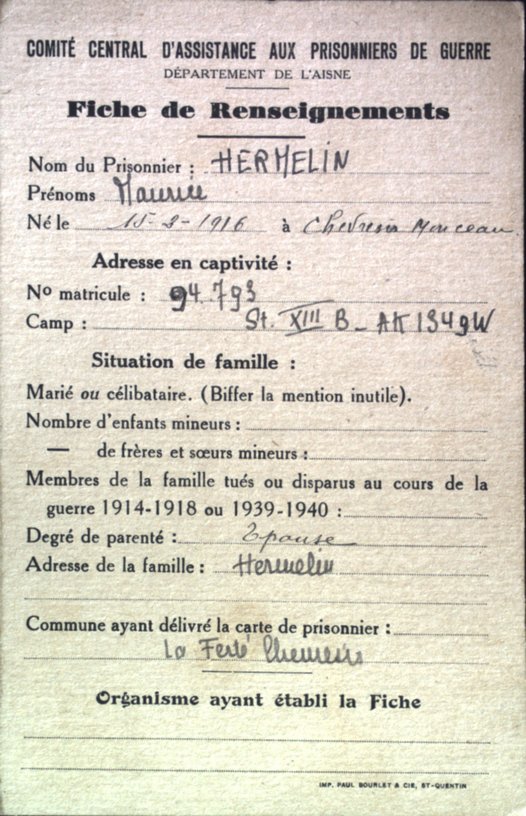 COMITÉ CENTRAL D'ASSISTANCE AUX PRISONNIERS DE GUERRE
DÉPARTEMENT DE L'AISNE
Fiche de Renseignements
Nom du Prisonnier : HERMELIN
Prénoms Maurice
Né le 15-2-1916 à Chevresis Monceau
Adresse en captivité :
No matricule : 94.793
Camp : St. XIII B - AK 1349W
Situation de famille :
Marié ou célibataire. (Biffer la mention inutile).
Nombre d'enfants mineurs :
— de frères et sœurs mineurs :
Membres de la famille tués ou disparus au cours de la
guerre 1914-1918 ou 1939-1940 :
Degré de parenté : Epouse
Adresse de la famille : Hermelin
Commune ayant délivré la carte de prisonnier :
La Ferté Chevresis
Organisme ayant établi la Fiche
IMP. PAUL BOURLET & CIE, ST-QUENTIN